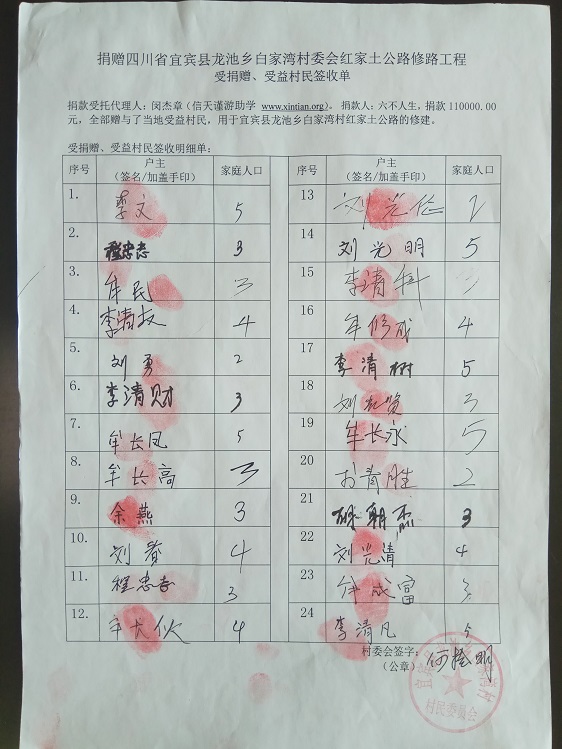 捐赠四川省宜宾县龙池乡白家湾村委会红家土公路修路工程
受捐赠、受益村民签收单
捐款受托代理人：闵杰章（信天谨游助学 www.xintian.org）。捐款人：六不人生，捐款 110000.00
元，全部赠与了当地受益村民，用于宜宾县龙池乡白家湾村红家土公路的修建。
受捐赠、受益村民签收明细单：
序号 户主（签名/加盖手印） 家庭人口 序号 户主（签名/加盖手印） 家庭人口
1. 李文 5 13 刘光伦 2
2. 程忠志 3 14 刘光明 5
3. 牟民 3 15 李清科 3
4. 李清友 4 16 牟修成 4
5. 刘勇 2 17 李清树 5
6. 李清财 3 18 刘 3
7. 牟长凤 5 19 牟长永 5
8. 牟长高 3 20 青胜 2
9. 余燕 3 21 朝杰 3
10. 刘眷 4 22 刘光清 4
11. 程忠志 3 23 成富 3
12. 牟长伙 4 24 李清凡 5
村委会签字：何 明
（公章）
村民委员会